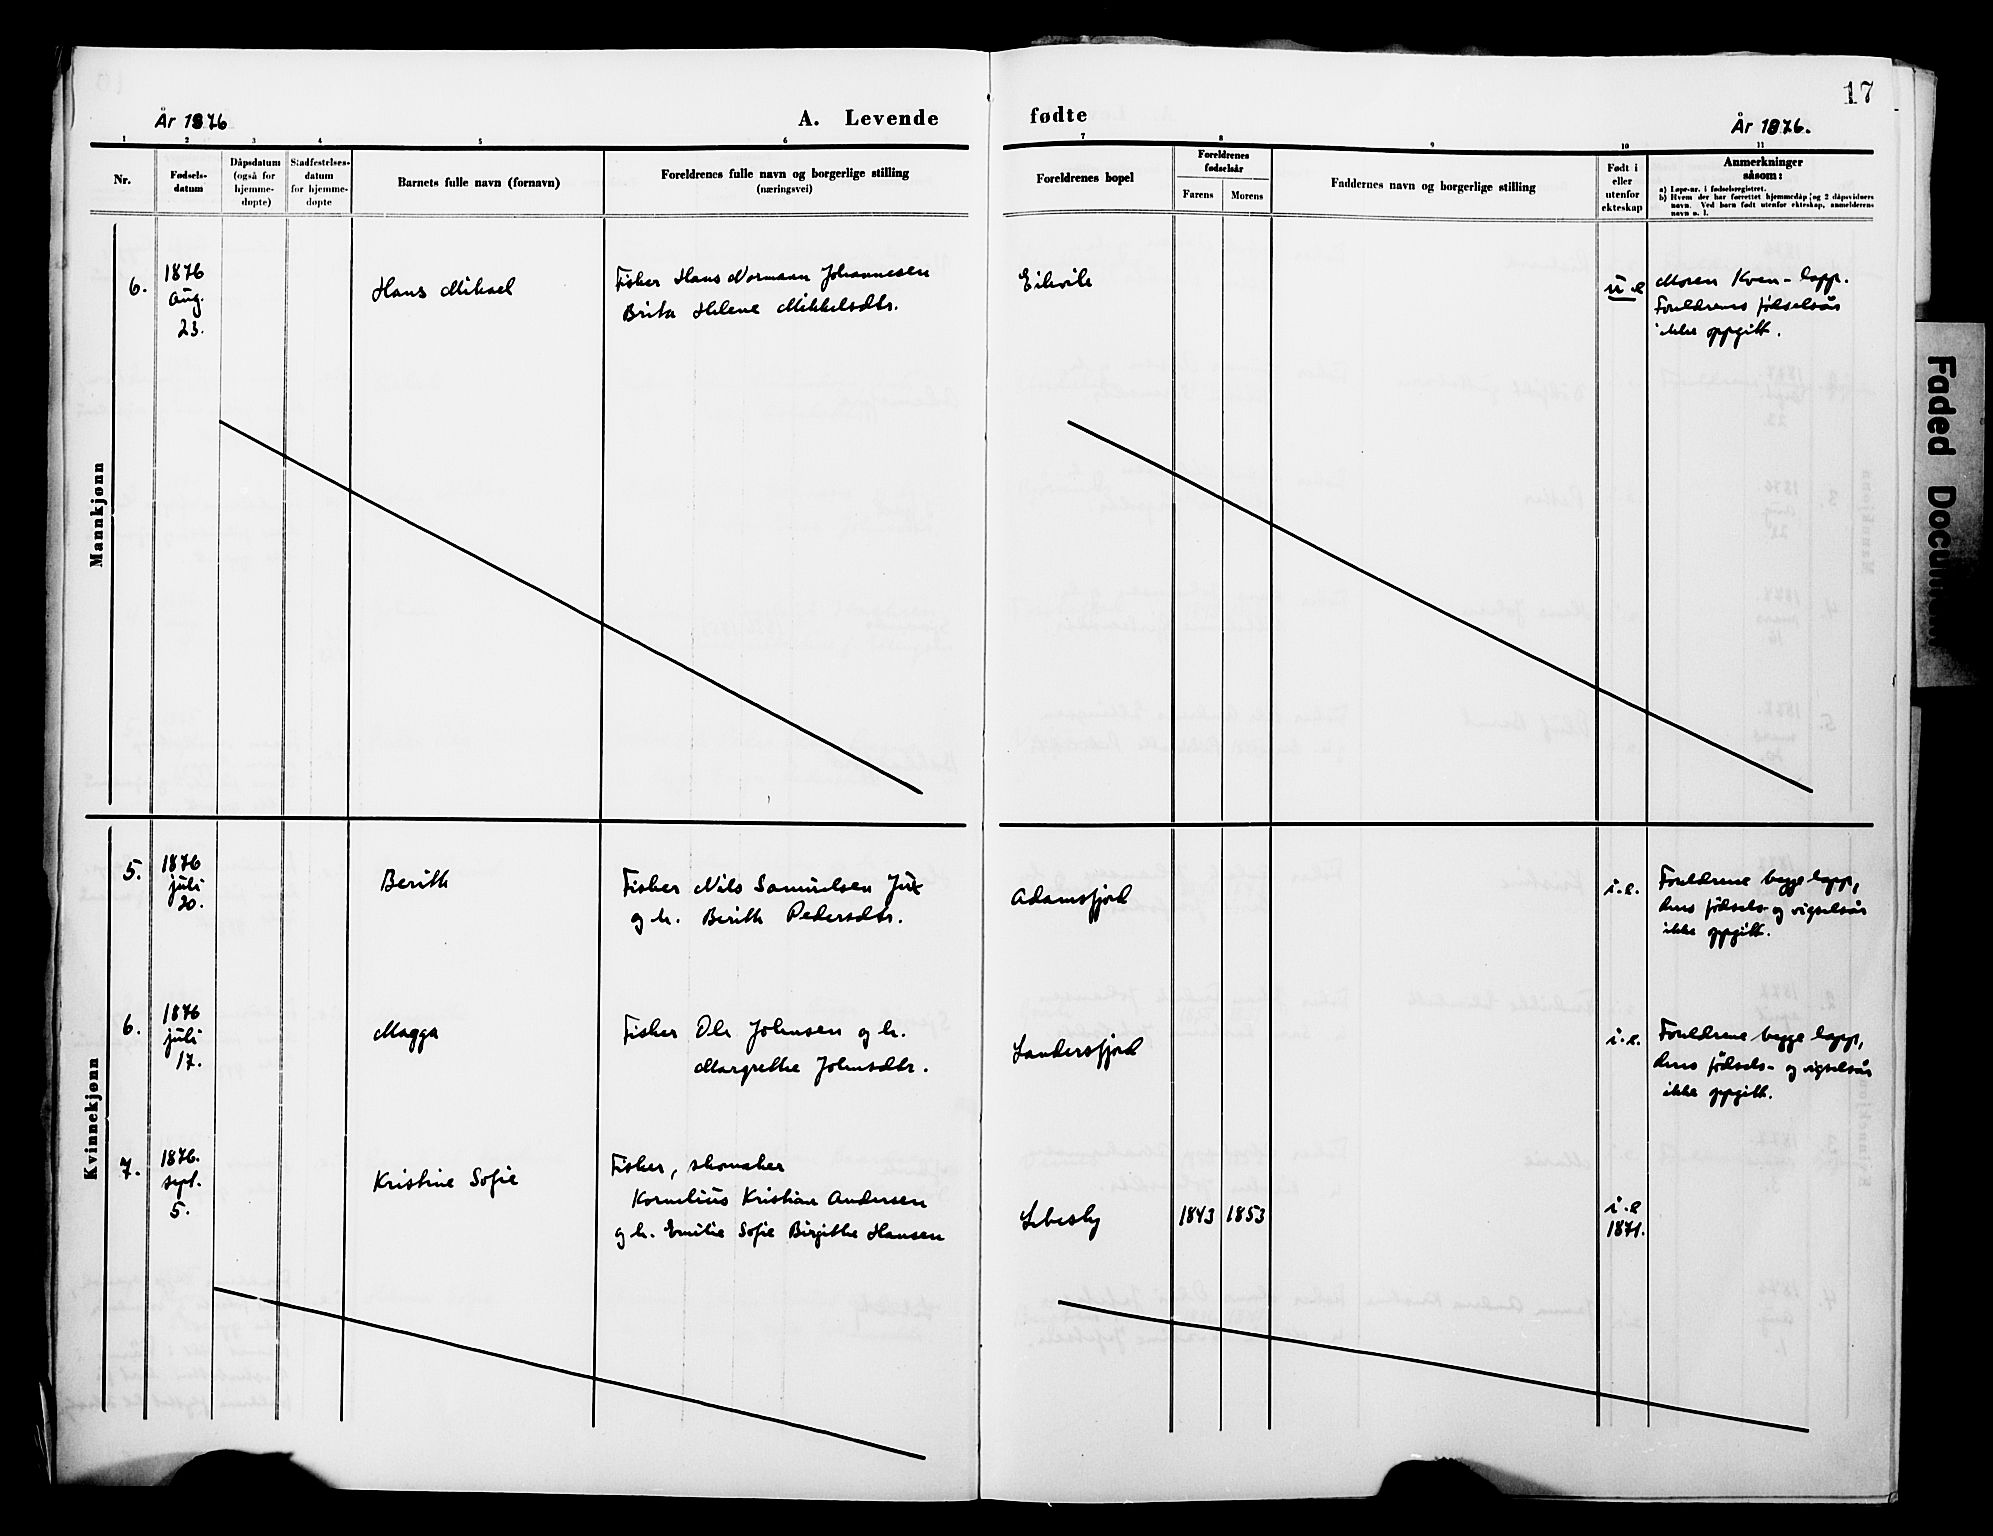 17
År 1876
A. Levende
fødte
År 1876.
1 2 3 4 5 6 7 8 9 10 11
Nr.
Fødsels-
datum
Dåpsdatum
(også for
hjemme-
døpte)
Stadfestelses-
datum
for hjemme-
døpte
Barnets fulle navn (fornavn)
Foreldrenes fulle navn og borgerlige stilling
(næringsvei)
Foreldrenes bopel
Foreldrenes
fødselsår
Farens Morens
Faddernes navn og borgerlige stilling
Født i
eller
utenfor
ekteskap
Anmerkninger
såsom:
a) Løpe-nr. i fødselsregistret.
b) Hvem der har forrettet hjemmedåp og 2 dåpsvidners
navn. Ved barn født utenfor ekteskap, anmelderens
navn o. l.
Mannkjønn
6.
1876
Aug.
23.
Hans Mikael
Fisker Hans Normann Johannesen
Brita Helene Mikkelsdtr.
Eikvik
u.e
Moren Kven-lapp.
Foreldrenes fødselsår
ikke oppgitt.
Kvinnekjønn
5.
1876
juli
20.
Berith
Fisker Nils Samuelsen
og h. Berith Pedersdtr.
Adamsfjord
i.e.
Foreldrene begge lapp,
deres fødsels- og vigselsår
ikke oppgitt.
6.
1876
juli
17.
Magga
Fisker Ole Johnsen og h.
Margrethe Johnsdtr.
Landersfjord
i.e.
Foreldrene begge lapp,
deres fødsels- og vigselsår
ikke oppgitt.
7.
1876.
sept.
5.
Kristine Sofie
Fisker, skomaker
Kornelius Kristian Andersen
og h. Emilie Sofie Birgithe Hansen
Lebesby
1843 1853
i.e
1871.
Faded Document